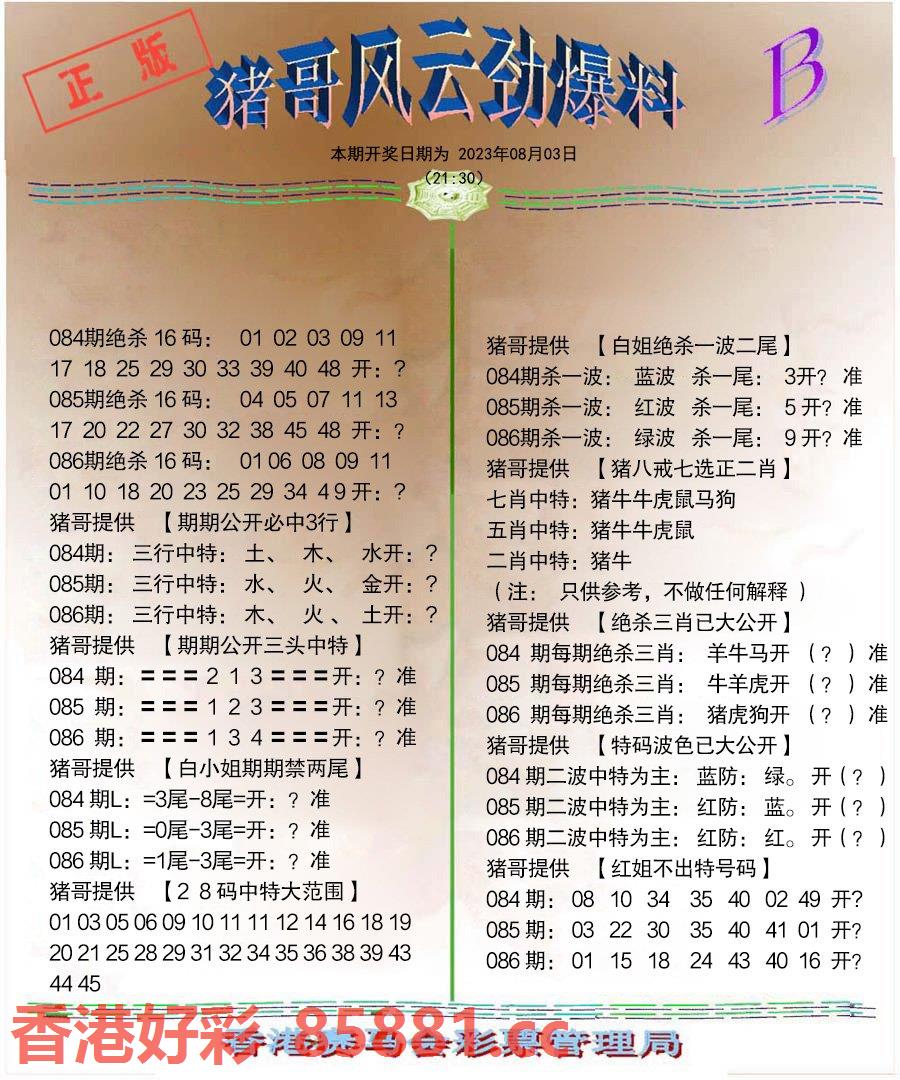 正版
猪哥风云劲爆料
B
本期开奖日期为 2023年08月03日
(21:30)
084期绝杀 16 码： 01 02 03 09 11
17 18 25 29 30 33 39 40 48 开：?
085期绝杀 16 码： 04 05 07 11 13
17 20 22 27 30 32 38 45 48 开：?
086期绝杀 16 码： 01 06 08 09 11
01 10 18 20 23 25 29 34 4 9 开：?
猪哥提供 【期期公开必中3行】
084期： 三行中特： 土、 木、 水开：?
085期： 三行中特： 水、 火、 金开：?
086期： 三行中特： 木、 火 、 土开：?
猪哥提供 【期期公开三头中特】
084 期：＝＝＝ 2 1 3 ＝＝＝开：? 准
085 期：＝＝＝ 1 2 3 ＝＝＝开：? 准
086 期：＝＝＝ 1 3 4 ＝＝＝开：? 准
猪哥提供 【白小姐期期禁两尾】
084 期L：=3尾-8尾=开：? 准
085 期L：=0尾-3尾=开：? 准
086 期L：=1尾-3尾=开：? 准
猪哥提供 【2 8 码中特大范围】
01 03 05 06 09 10 11 11 12 14 16 18 19
20 21 25 28 29 31 32 34 35 36 38 39 43
44 45
猪哥提供 【白姐绝杀一波二尾】
084期杀一波： 蓝波 杀一尾： 3开? 准
085期杀一波： 红波 杀一尾： 5 开? 准
086期杀一波： 绿波 杀一尾： 9 开? 准
猪哥提供 【猪八戒七选正二肖】
七肖中特：猪牛牛虎鼠马狗
五肖中特：猪牛牛虎鼠
二肖中特：猪牛
（注： 只供参考，不做任何解释 ）
猪哥提供 【 绝杀三肖已大公开】
084 期每期绝杀三肖： 羊牛马开 （ ? ）准
085 期每期绝杀三肖： 牛羊虎开 （ ? ）准
086 期每期绝杀三肖： 猪虎狗开 （ ? ）准
猪哥提供 【特码波色已大公开】
084 期二波中特为主： 蓝防： 绿。 开（ ? ）
085 期二波中特为主： 红防： 蓝。 开（ ? ）
086 期二波中特为主： 红防： 红。 开（ ? ）
猪哥提供 【红姐不出特号码】
084 期： 08 10 34 35 40 02 49 开?
085 期： 03 22 30 35 40 41 01 开?
086 期： 01 15 18 24 43 40 16 开?
香港好彩 85881.cc
香港赛马会彩票管理局